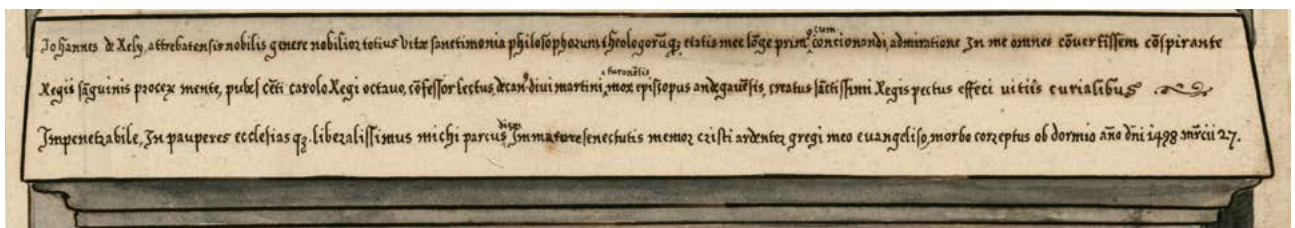 Johannes de Rely, attrebatensis nobilis genere nobilior totius vitæ sanctimonia philosophorum theologorūqꝫ etatis mee lōge prim⁹ cum concionandi, admiratione In me omnes cōvertissem cōspirante
Regii sāguinis procerū mente, pubes cēti carolo Regi octavo, cōfessor lectus, decan⁹ divi martini turonēsis, mox episcopus andegavēsis, creatus sāctissimi Regis pectus effeci vitiis curialibus
Impenetrabile, In pauperes ecclesias qꝫ. liberalissimus michi parcus, senectutis memor cristi ardenter gregi meo euangeliso, morbo correptus ob dormio año dñi 1498 27.